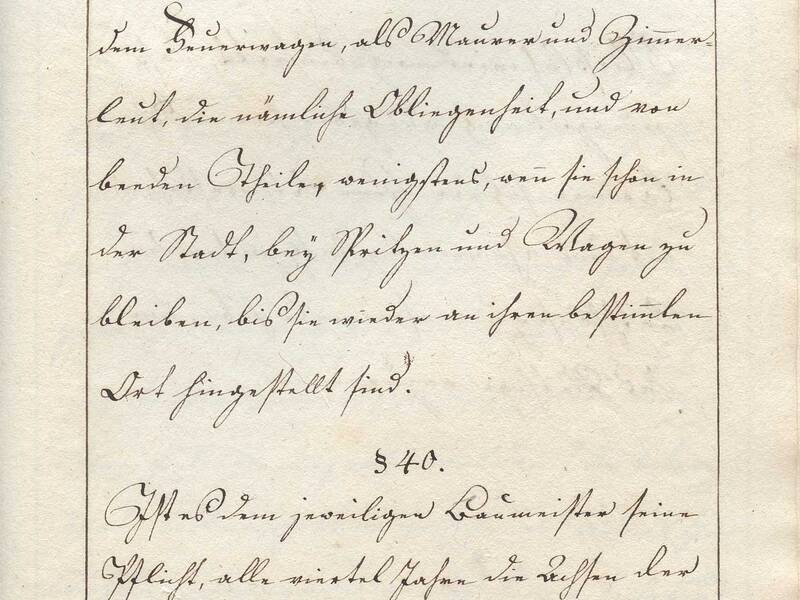 dem Feuerwagen, als Maurer und Zimmer-
leut, die nämliche Obliegenheit, und von
beeden Theile, wenigstens, wenn sie schon in
der Stadt, bey Spritzen und Wagen zu
bleiben, bis sie wieder an ihren bestim̅ten
Ort hingestellt sind.
§ 40.
Ist es dem jeweiligen Baumeister seine
Pflicht, alle viertel Jahre die Achsen der